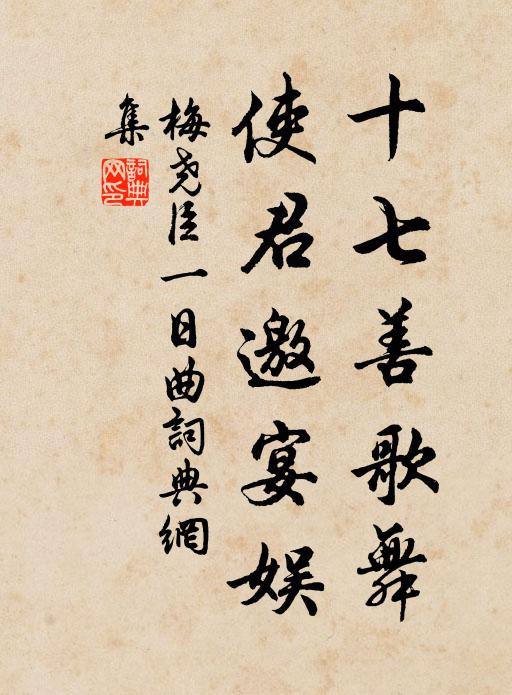 十七善歌舞
使君邀宴娱
梅尧臣一日曲詞典網
集
詞典网印